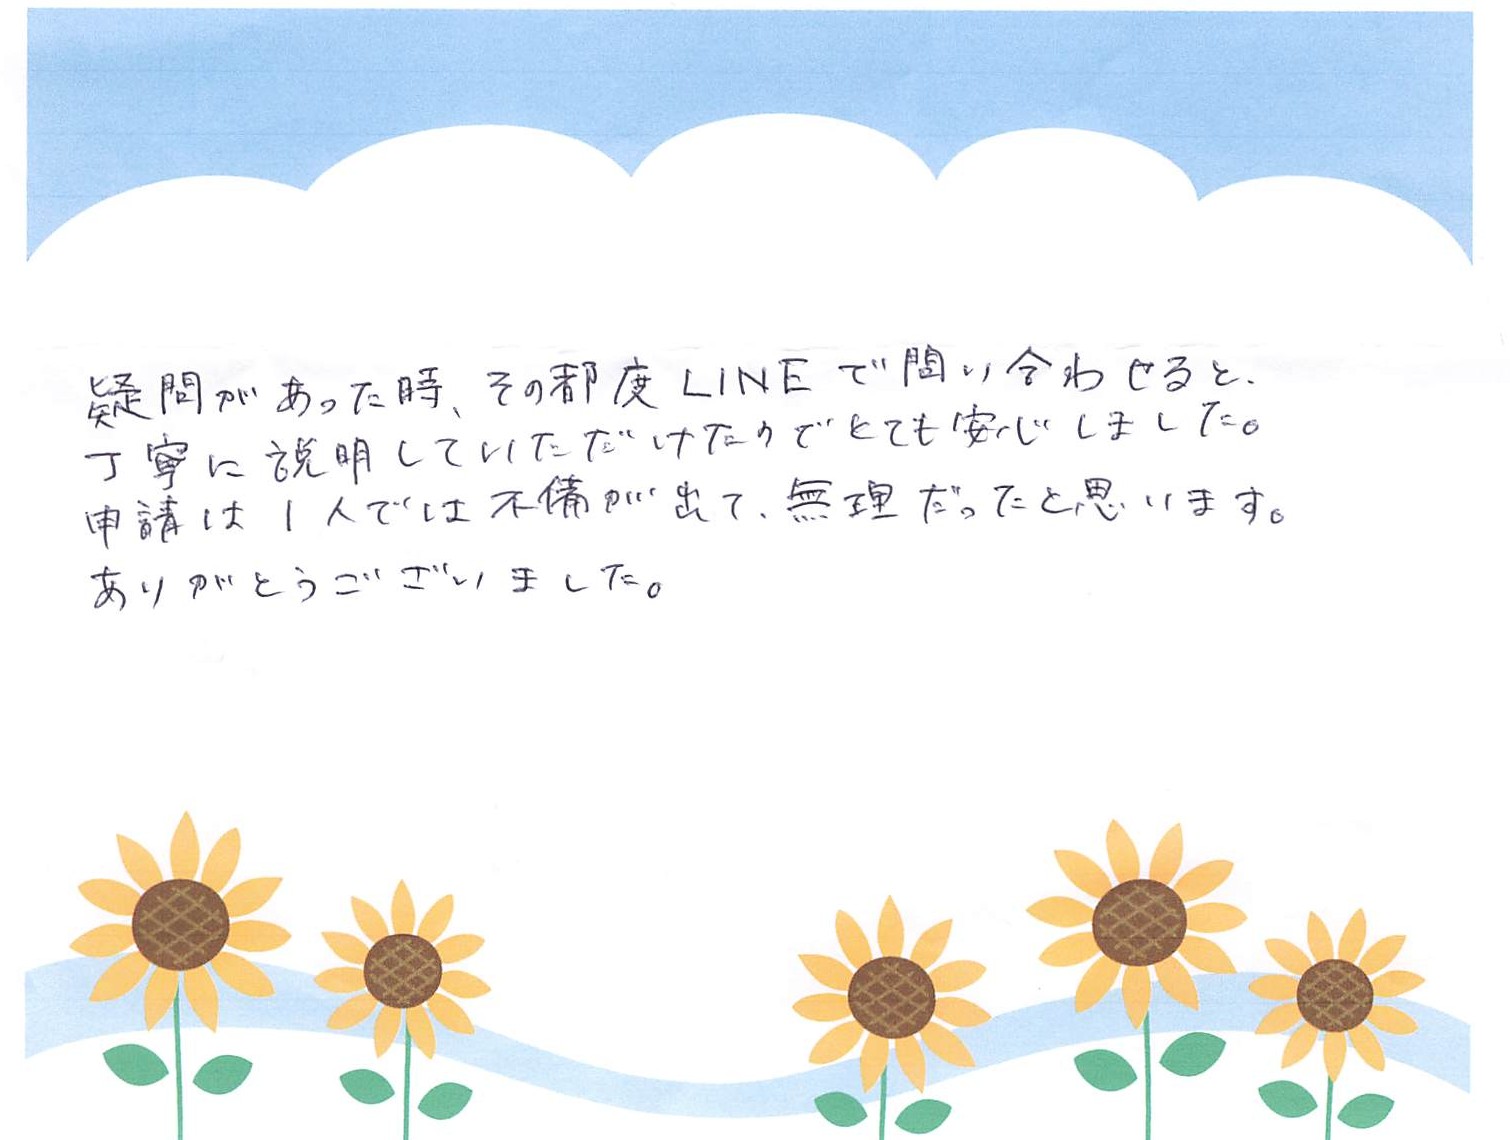 疑問があった時、その都度LINEで問い合わせると、
丁寧に説明していただけたのでとても安心しました。
申請は1人では不備が出て、無理だったと思います。
ありがとうございました。